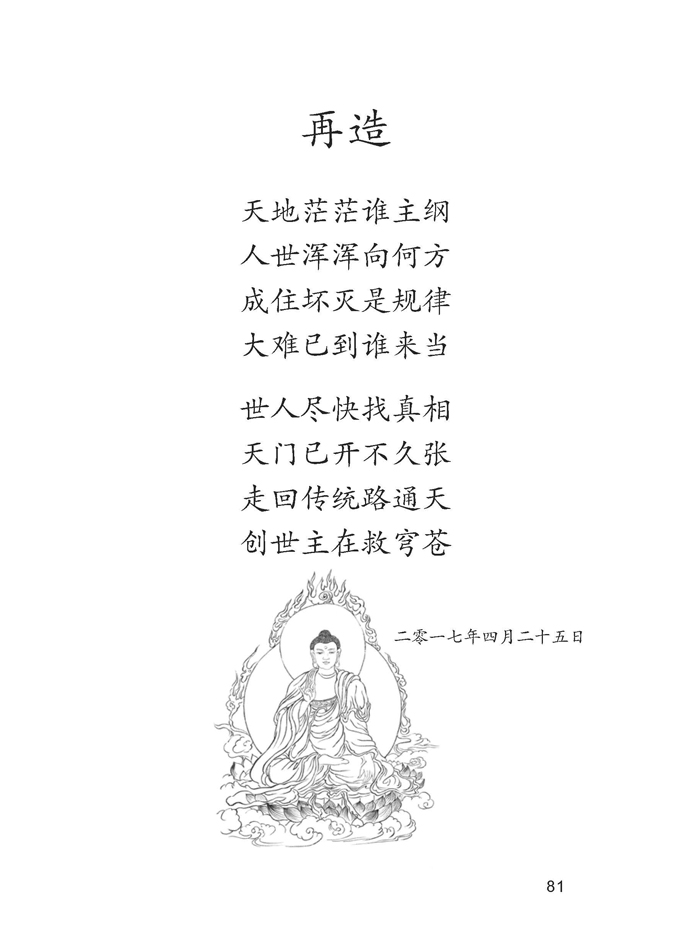 再造
天地茫茫谁主纲
人世浑浑向何方
成住坏灭是规律
大难已到谁来当
世人尽快找真相
天门已开不久张
走回传统路通天
创世主在救穹苍
二零一七年四月二十五日
81